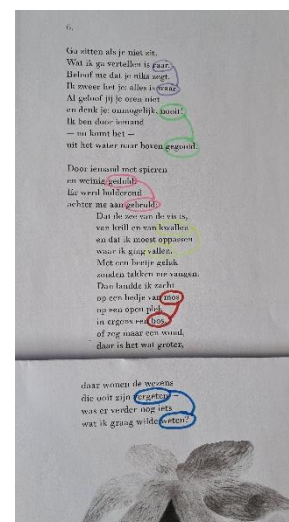 6.
Ga zitten als je niet zit.
Wat ik ga vertellen is raar.
Beloof me dat je niks zegt.
Ik zweer het je: alles is waar.
Al geloof jij je oren niet
en denk je: onmogelijk, nooit!
Ik ben door iemand
— nu komt het —
uit het water naar boven gegooid.
Door iemand met spieren
en weinig geduld.
Er werd bulderend
achter me aan gebruld:
Dat de zee van de vis is,
van krill en van kwallen
en dat ik moest oppassen
waar ik ging vallen.
Met een beetje geluk
zouden takken me vangen.
Dan landde ik zacht
op een bedje van mos
op een open plek
in ergens een bos,
of zeg maar een woud,
daar is het wat groter,
daar wonen de wezens
die ooit zijn vergeten –
was er verder nog iets
wat ik graag wilde weten?